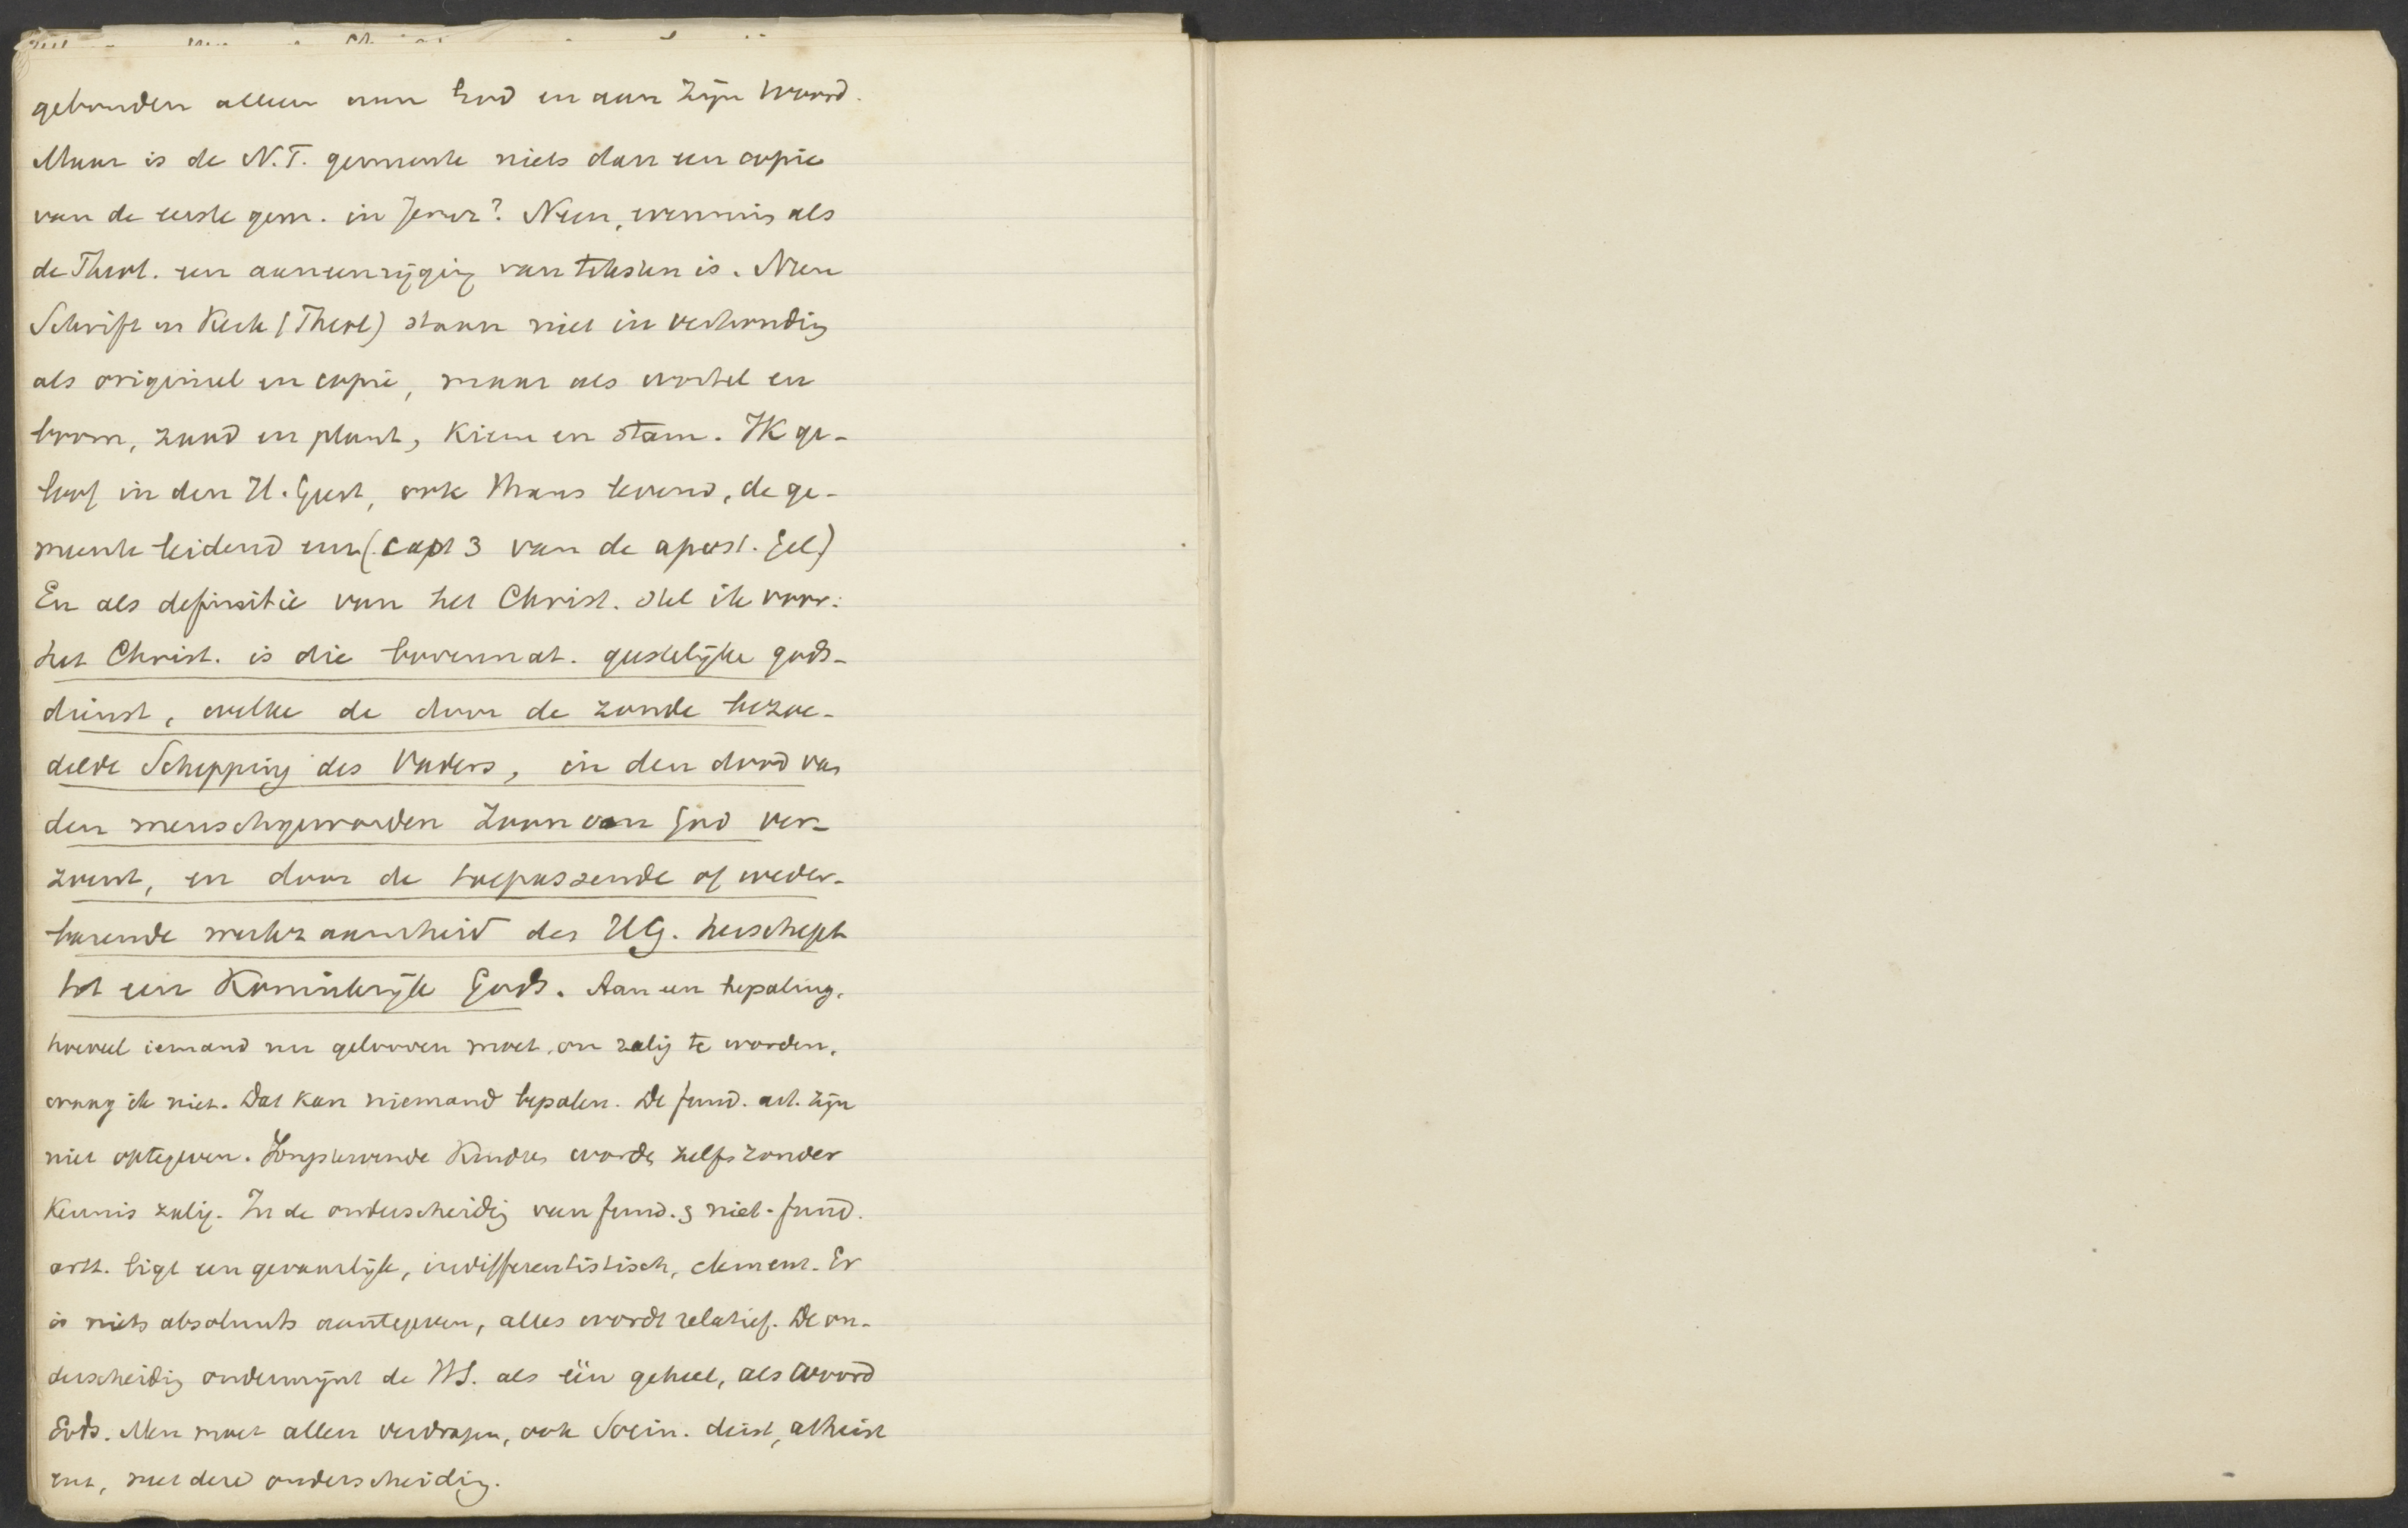 gebonden alleen aan God en aan zijn Woord.
Maar is de N.T. gemeente niets dan een copie
van de eerste gem. in Jeruz? Neen, evenmin als
de Theol. een aaneenrijging van teksten is. Neen
Schrift en Kerk (Theol) staan niet in verhouding
als origineel en copie, maar als wortel en
boom, zaad en plant, kiem en stam. Ik ge-
loof in den H. Geest, ook thans levend, de ge-
meente leidend enz (capt 3 van de apost. Gel)
En als definitie van het Christ. stel ik voor:
het Christ. is die bovennat. geestelijke gods-
dienst, welke de door de zonde bezoe-
delde Schepping des Vaders, in den dood van
den menschgeworden Zoon van God ver-
zoent, en door de toepassende of weder-
barende werkzaamheid des HG. herschept
tot een Koninkrijk Gods. Aan een bepaling,
hoeveel iemand nu gelooven moet om zalig te worden,
waag ik niet. Dat kan niemand bepalen. De fund. art. zijn
niet optegeven. Jongstervende Kindren worden zelfs zonder
Kennis zalig. In de onderscheiding van fund. & niet-fund.
artt. ligt een gevaarlijk, indifferentistisch, element. Er
is niets absoluuts aantegeven, alles wordt relatief. De on-
derscheiding ondermijnt de HS. als één geheel, als Woord
Gods. Men moet allen verdragen, ook Socin. deist, atheist
enz, met deze onderscheiding.